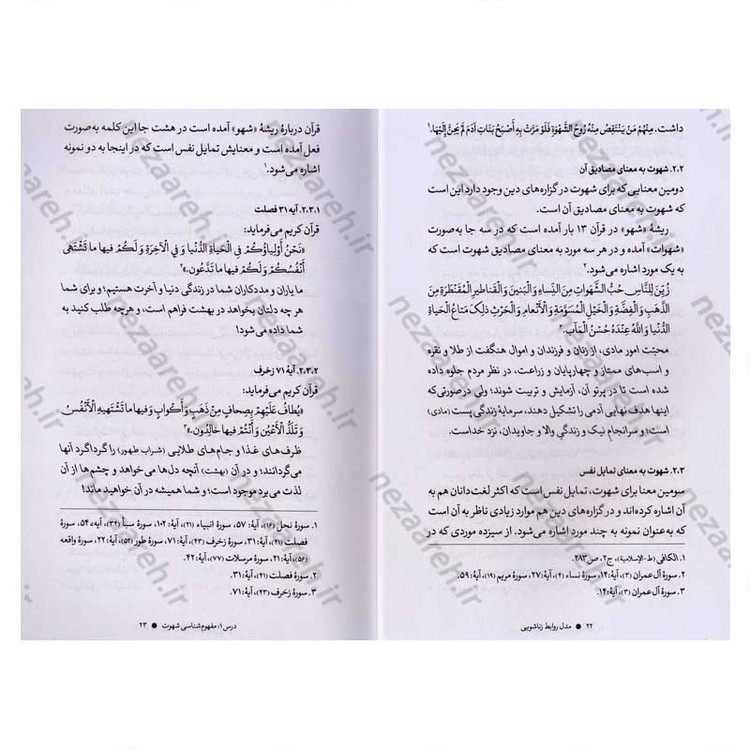 داشت. مِنْهُمْ مَنْ يَنْتَقِصُ مِنْهُ رُوحَ الشَّهْوَةِ فَلَوْ مَرَّتْ بِهِ أَصْبَحُ بَنَاتِ آدَمَ لَمْ يَحِنَّ إِلَيْهَا.¹
۲.۲. شهوت به معنای مصادیق آن
دومین معنایی که برای شهوت در گزاره‌های دین وجود دارد این است
که شهوت به معنای مصادیق آن است.
ریشهٔ «شهو» در قرآن ۱۳ بار آمده است که در سه جا به‌صورت
«شهوات» آمده و در هر سه مورد به معنای مصادیق شهوت است که
به یک مورد اشاره می‌شود.²
زُيِّنَ لِلنَّاسِ حُبُّ الشَّهَوَاتِ مِنَ النِّسَاءِ وَالْبَنِينَ وَالْقَنَاطِيرِ الْمُقَنْطَرَةِ مِنَ
الذَّهَبِ وَالْفِضَّةِ وَالْخَيْلِ الْمُسَوَّمَةِ وَالْأَنْعَامِ وَالْحَرْثِ ذَلِكَ مَتَاعُ الْحَيَاةِ
الدُّنْيَا وَاللَّهُ عِنْدَهُ حُسْنُ الْمَآبِ.³
محبّت امور مادی، از زنان و فرزندان و اموال هنگفت از طلا و نقره
و اسب‌های ممتاز و چهارپایان و زراعت، در نظر مردم جلوه داده
شده است تا در پرتو آن، آزمایش و تربیت شوند؛ ولی درصورتی‌که
اینها هدف نهایی آدمی را تشکیل دهند، سرمایهٔ زندگی پست (مادی)
است؛ و سرانجام نیک و زندگی والا و جاویدان، نزد خداست.
۲.۳. شهوت به معنای تمایل نفس
سومین معنا برای شهوت، تمایل نفس است که اکثر لغت‌دانان هم به
آن اشاره کرده‌اند و در گزاره‌های دین هم موارد زیادی ناظر به آن است
که به‌عنوان نمونه به چند مورد اشاره می‌شود. از سیزده موردی که در
۱. الکافی (ط-الإسلامیة)، ج۲، ص ۲۸۳.
۲. سورهٔ آل عمران (۳)، آیهٔ:۱۴، سورهٔ نساء (۴)، آیهٔ:۲۷، سورهٔ مریم (۱۹)، آیهٔ: ۵۹.
۳. سورهٔ آل عمران (۳)، آیهٔ:۱۴.
۲۲ ● مدل روابط زناشویی
قرآن دربارهٔ ریشهٔ «شهو» آمده است در هشت جا این کلمه به‌صورت
فعل آمده است و معنایش تمایل نفس است که در اینجا به دو نمونه
اشاره می‌شود.¹
۲.۳.۱. آیه ۳۱ فصلت
قرآن کریم می‌فرماید:
«نَحْنُ أَوْلِيَاؤُكُمْ فِي الْحَيَاةِ الدُّنْيَا وَ فِي الْآخِرَةِ وَ لَكُمْ فِيهَا مَا تَشْتَهِي
أَنْفُسُكُمْ وَ لَكُمْ فِيهَا مَا تَدَّعُونَ.»²
ما یاران و مددکاران شما در زندگی دنیا و آخرت هستیم؛ و برای شما
هر چه دلتان بخواهد در بهشت فراهم است، و هرچه طلب کنید به
شما داده می‌شود!
۲.۳.۲. آیهٔ ۷۱ زخرف
قرآن کریم می‌فرماید:
«يُطَافُ عَلَيْهِمْ بِصِحَافٍ مِنْ ذَهَبٍ وَ أَكْوَابٍ وَ فِيهَا مَا تَشْتَهِيهِ الْأَنْفُسُ
وَ تَلَذُّ الْأَعْيُنُ وَ أَنْتُمْ فِيهَا خَالِدُونَ.»³
ظرف‌های غذا و جام‌های طلایی (شراب طهور) را گرداگرد آنها
می‌گردانند؛ و در آن (بهشت) آنچه دل‌ها می‌خواهد و چشم‌ها از آن
لذت می‌برد موجود است؛ و شما همیشه در آن خواهید ماند!
۱. سورهٔ نحل (۱۶)، آیهٔ: ۵۷، سورهٔ انبیاء (۲۱)، آیهٔ: ۱۰۲، سورهٔ سبأ (۳۴)، آیه: ۵۴، سورهٔ
فصلت (۴۱)، آیهٔ: ۳۱، سورهٔ زخرف (۴۳)، آیهٔ: ۷۱، سورهٔ طور (۵۲)، آیهٔ: ۲۲، سورهٔ واقعه
(۵۶)، آیهٔ: ۲۱، سورهٔ مرسلات (۷۷)، آیهٔ: ۴۲.
۲. سورهٔ فصلت (۴۱)، آیهٔ: ۳۱.
۳. سورهٔ زخرف (۴۳)، آیهٔ: ۷۱.
درس ۱: مفهوم‌شناسی شهوت ● ۲۳
nezaareh.ir